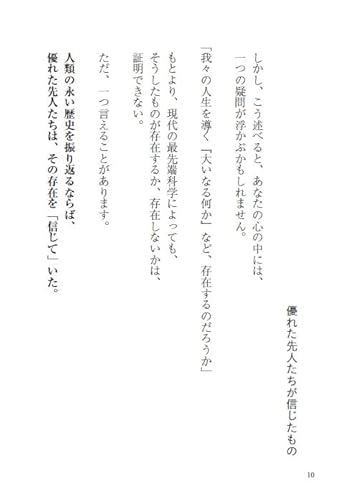 優れた先人たちが信じたもの
しかし、こう述べると、あなたの心の中には、
一つの疑問が浮かぶかもしれません。
「我々の人生を導く『大いなる何か』など、存在するのだろうか」
もとより、現代の最先端科学によっても、
そうしたものが存在するか、存在しないかは、
証明できない。
ただ、一つ言えることがあります。
人類の永い歴史を振り返るならば、
優れた先人たちは、その存在を「信じて」いた。
10